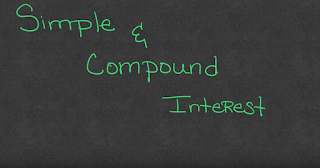 Simple &
Compound
Interest